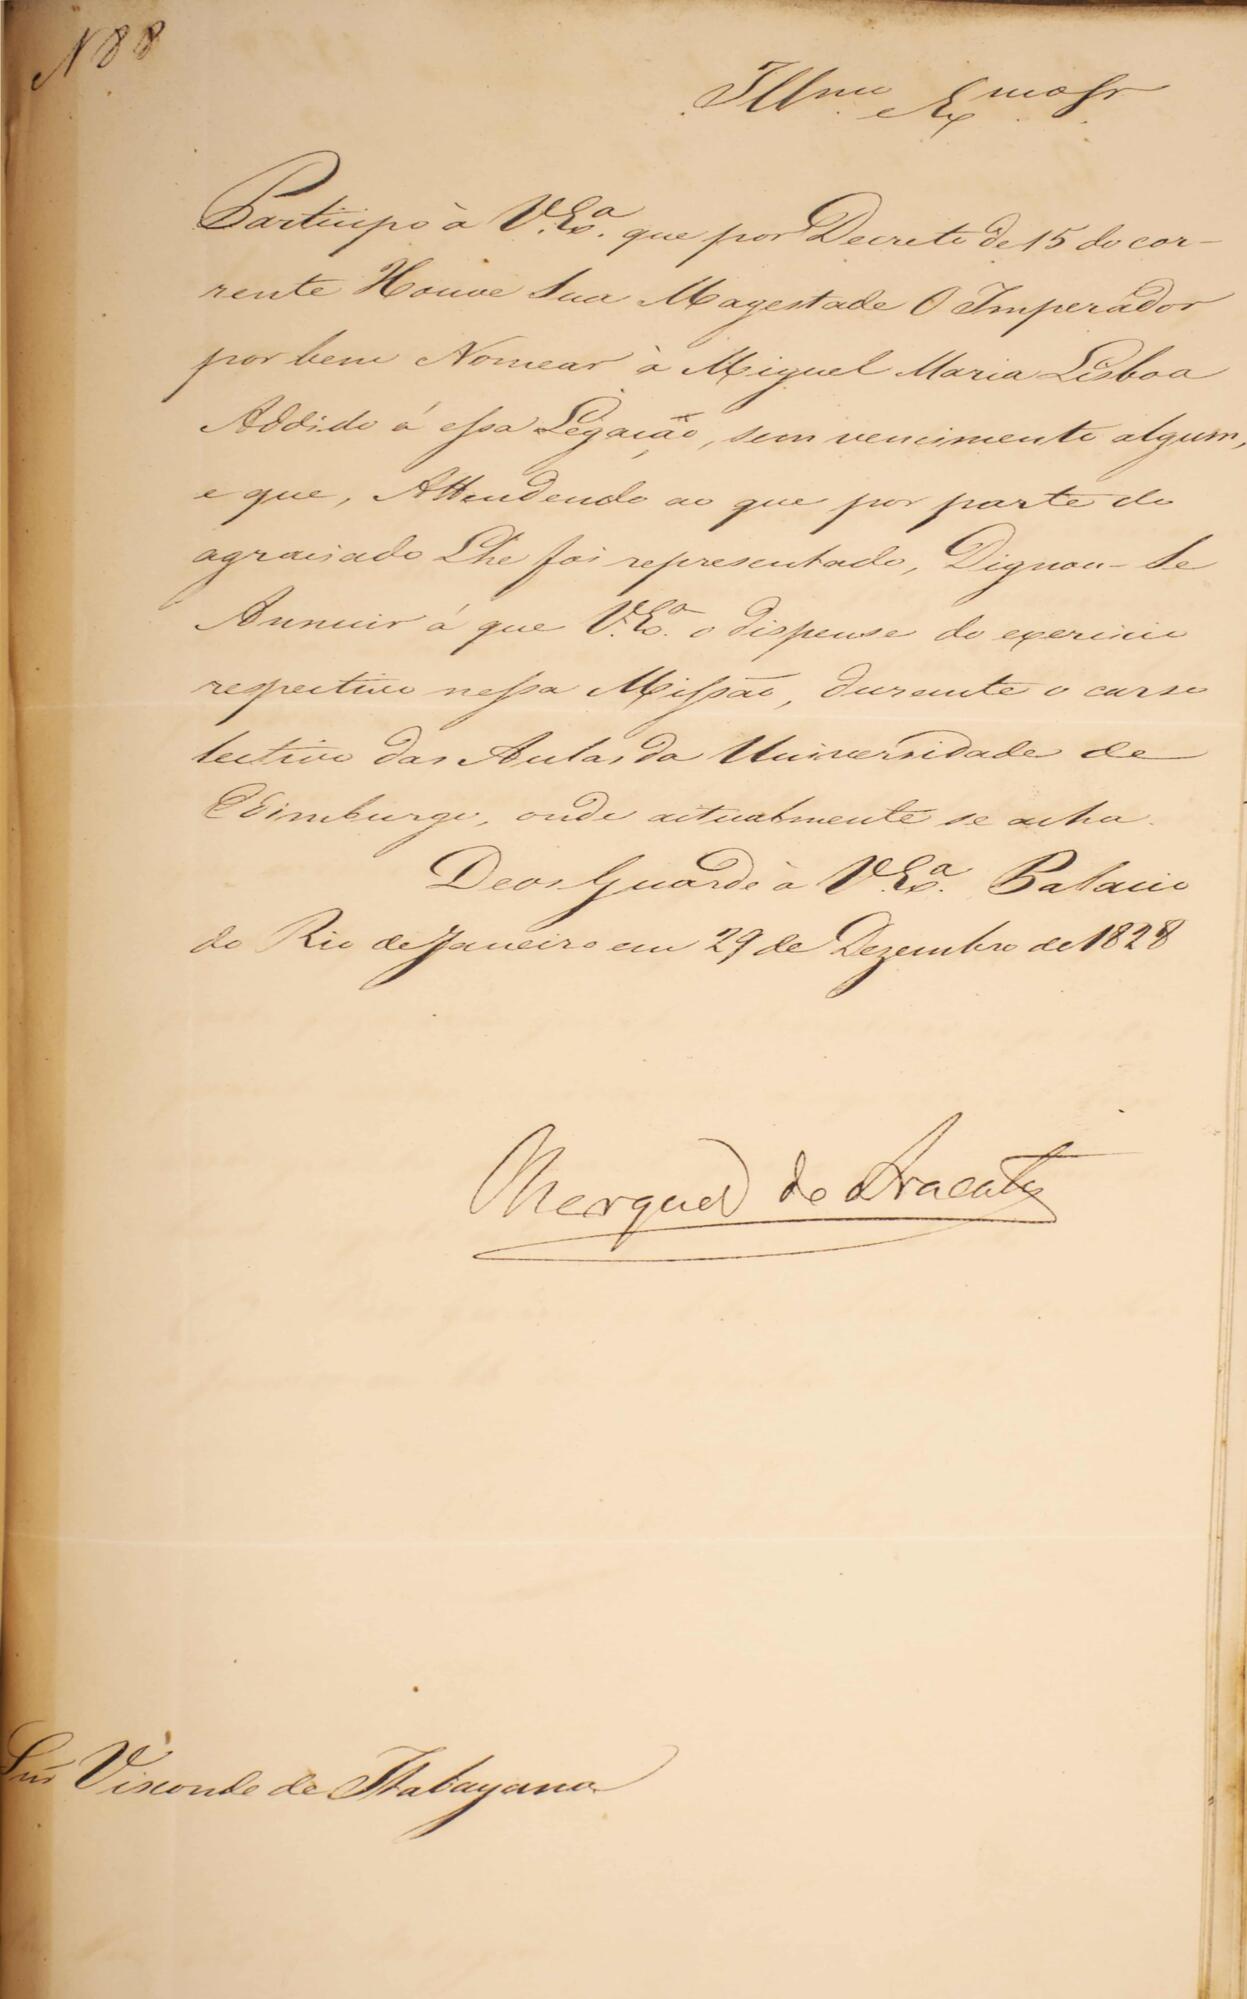 N 88
Illmo Exmo Sr
Participo à V. Exa. que por Decreto de 15 do cor-
rente Houve Sua Magestade O Imperador
por bem Nomear à Miguel Maria Lisboa
Addido á essa Legação, sem vencimento algum,
e que, Attendendo ao que por parte do
agraciado Lhe foi representado, Dignou-Se
Annuir á que V. Exa. o dispense do exercicio
respectivo nessa Missão, durante o curso
lectivo das Aulas da Universidade de
Edimburgo, onde actualmente se acha.
Deos Guarde à V. Exa. Palacio
do Rio de Janeiro em 29 de Dezembro de 1828
Marquez de Aracaty
Snr Visconde de Itabayana